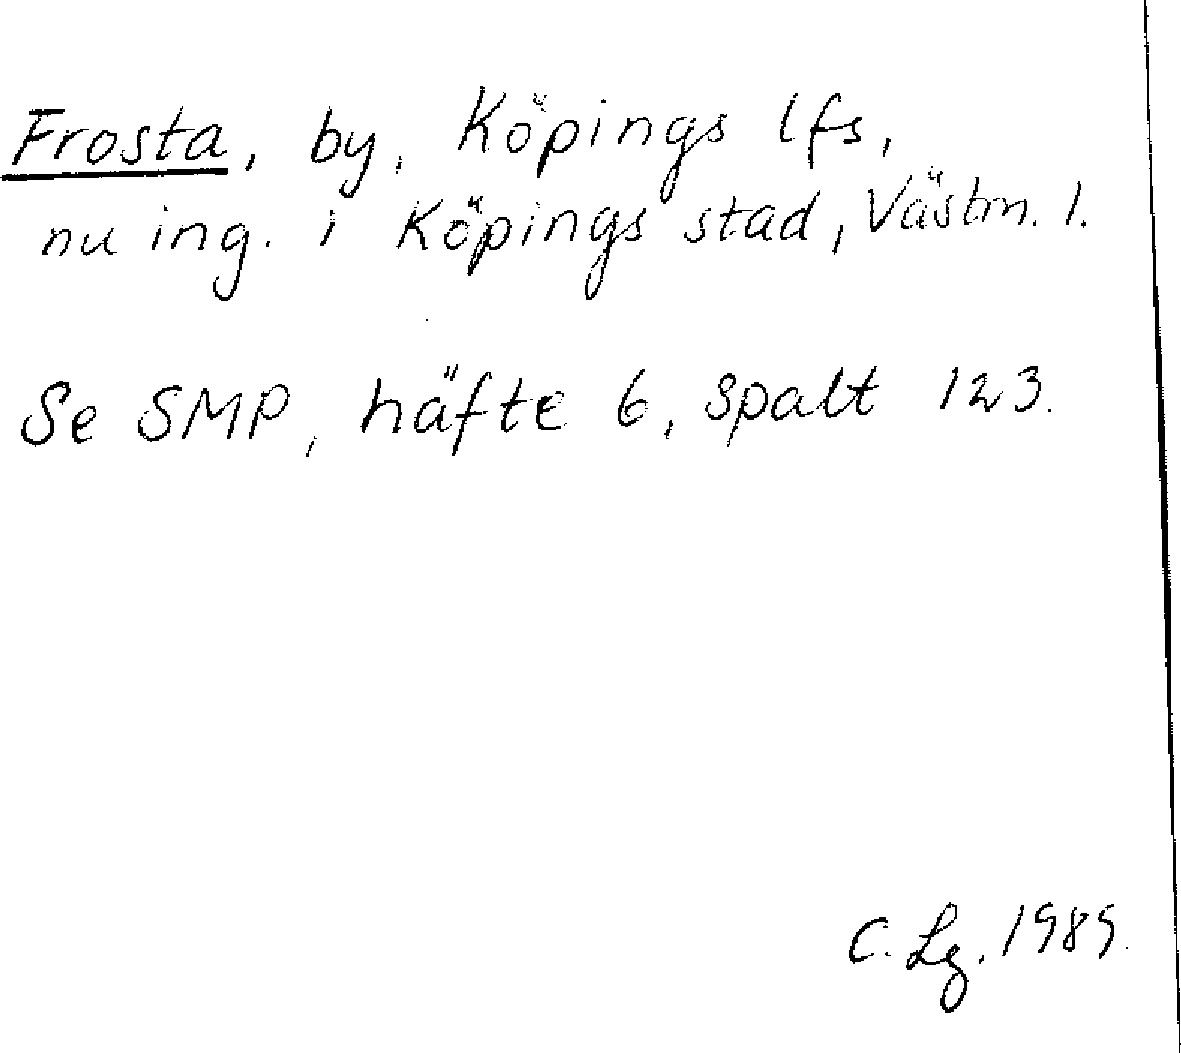 Frosta, by, Köpings lfs,
nu ing. i Köpings stad, Västm. l.
Se SMP, häfte 6, spalt 123.
C. Lg. 1989.